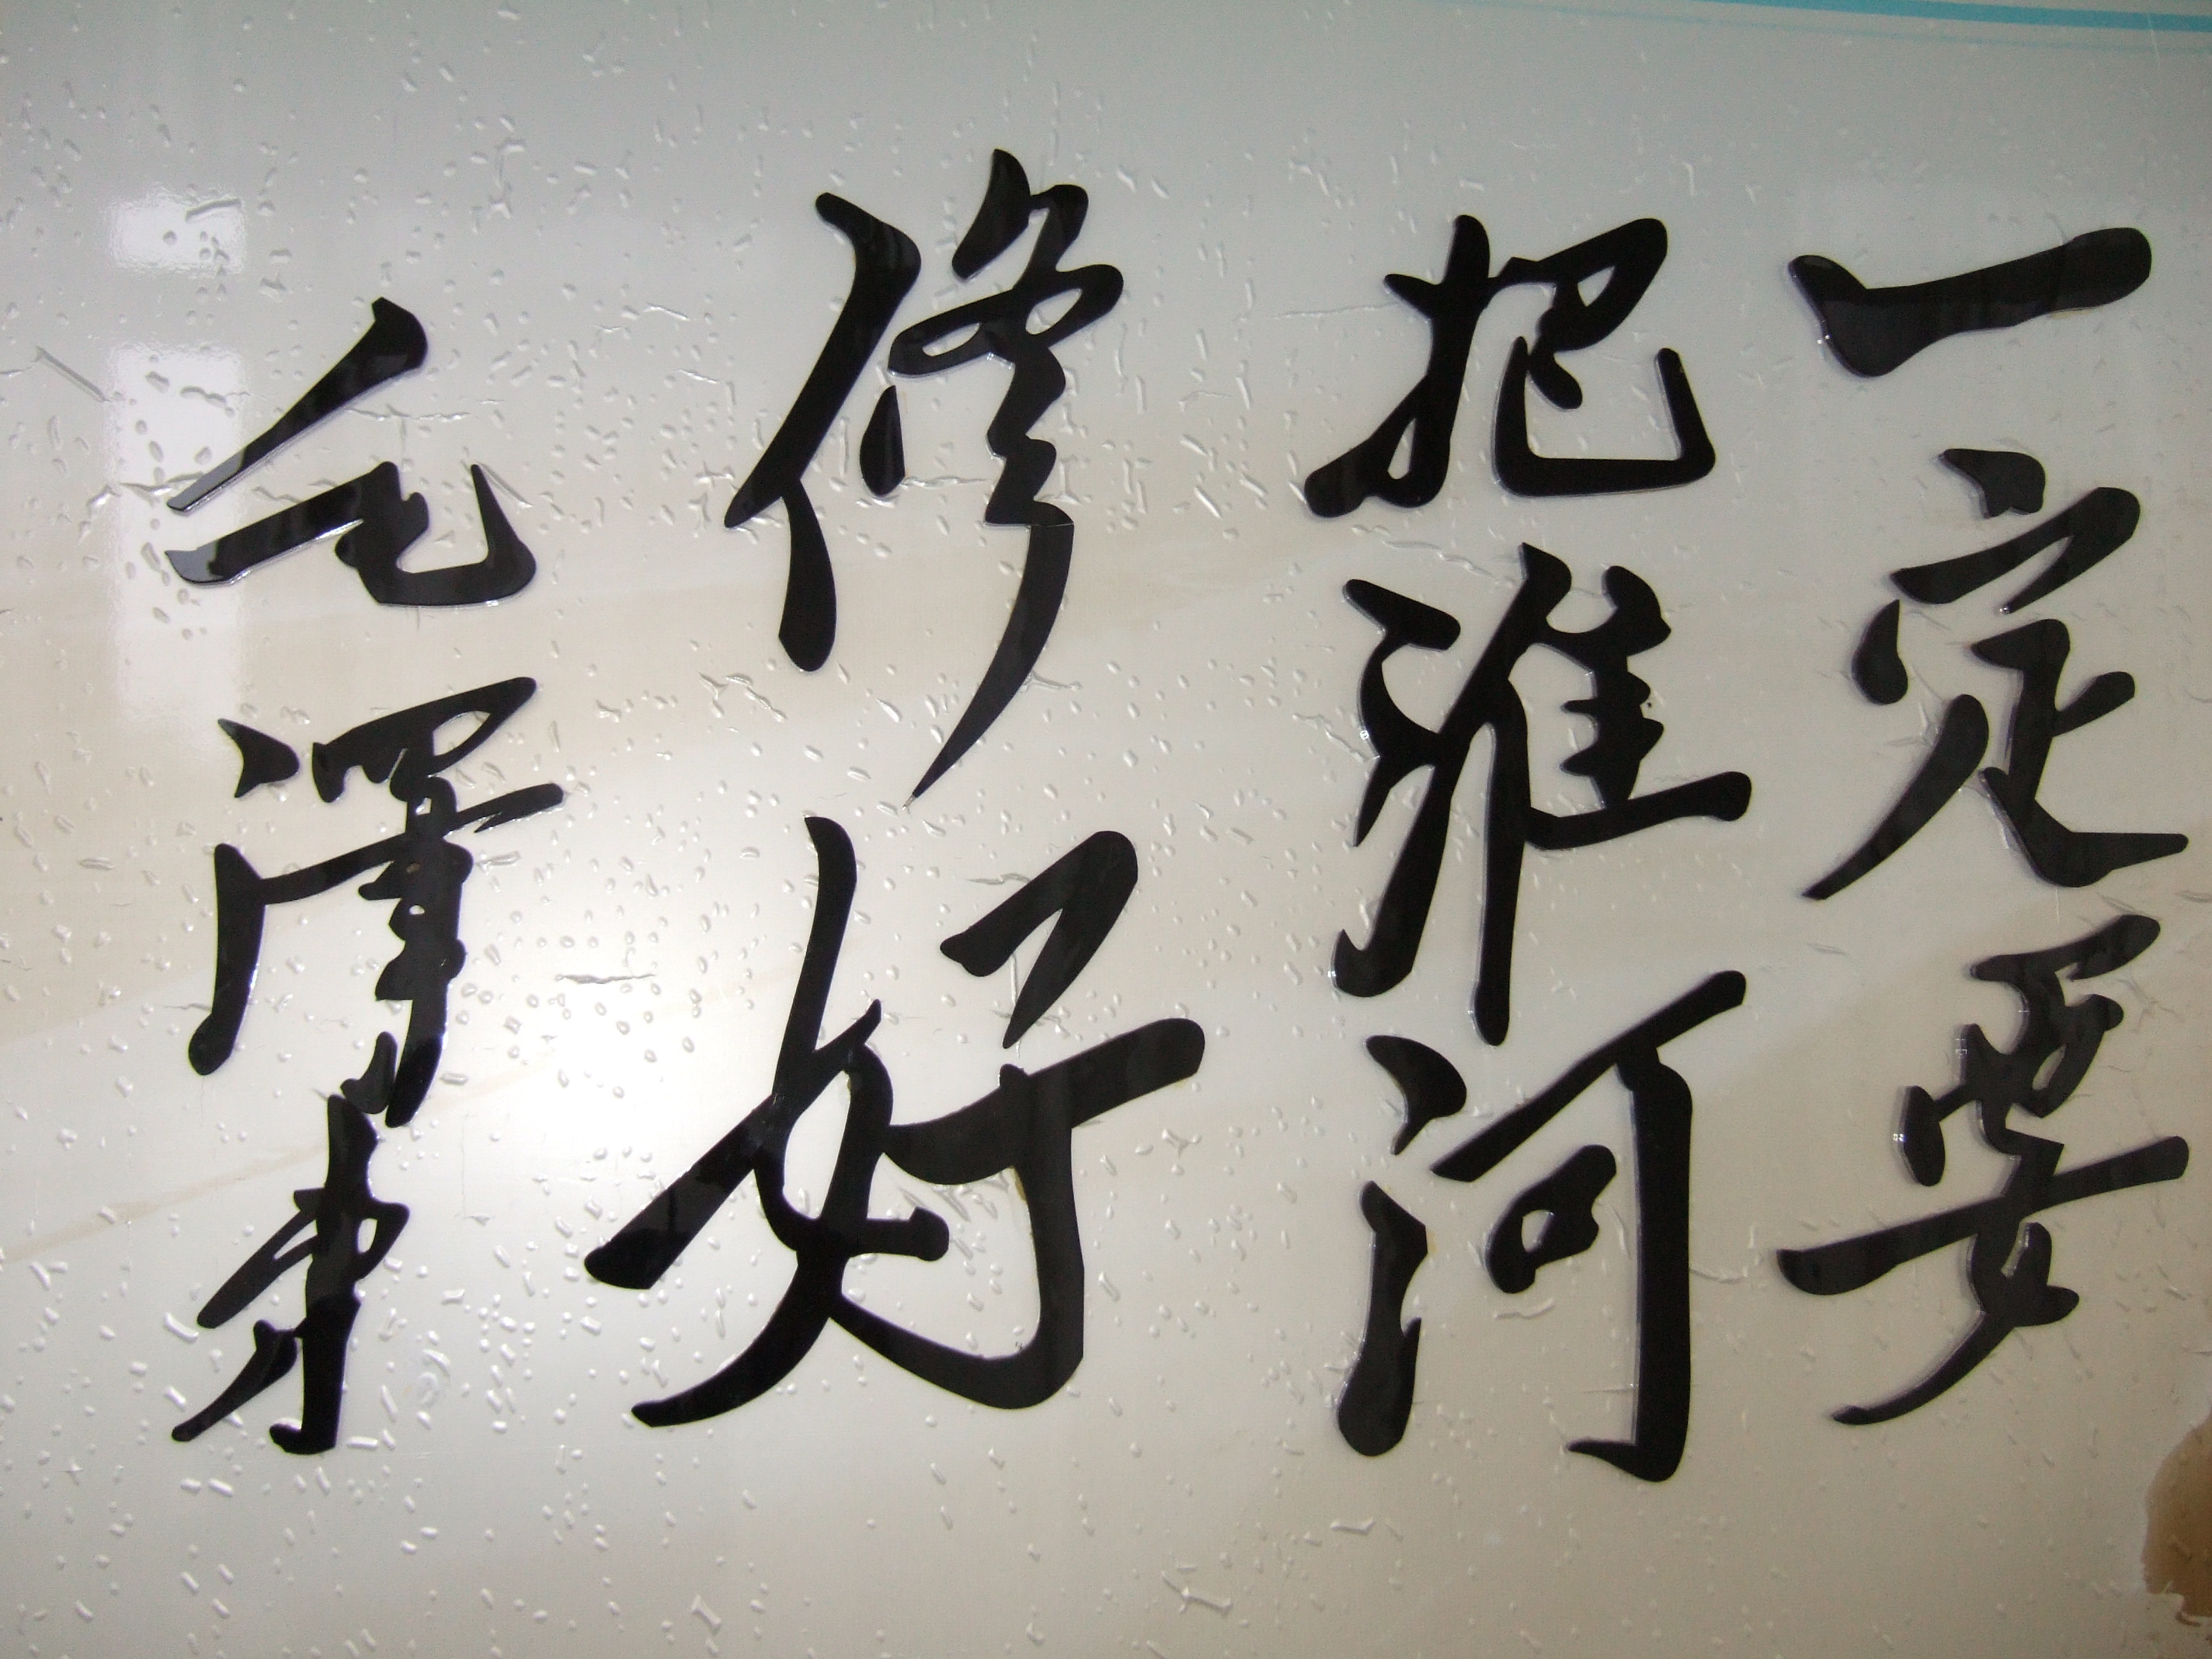 一定要
把淮河
修好
毛澤東